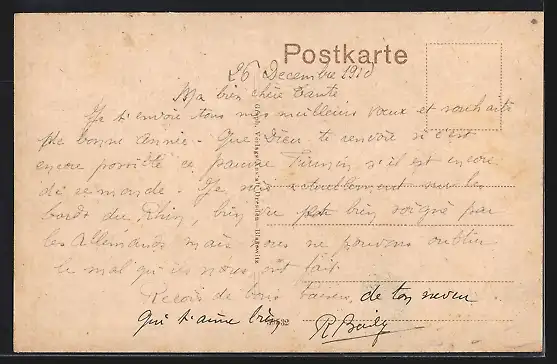 Postkarte
26 Decembre 1918
Ma bien chère Tante
Je t'envoie tous mes meilleurs vœux et souhaite
bonne année. - Que Dieu te renvoie si c'est
encore possible ce pauvre Firmin s'il est encore
de ce monde. - Je suis actuellement sur les
bords du Rhin, bien bien soigné par
les Allemands mais nous ne pouvons oublier
le mal qu'ils nous ont fait
Reçois de bons baisers de ton neveu
qui t'aime bien
R Bailly